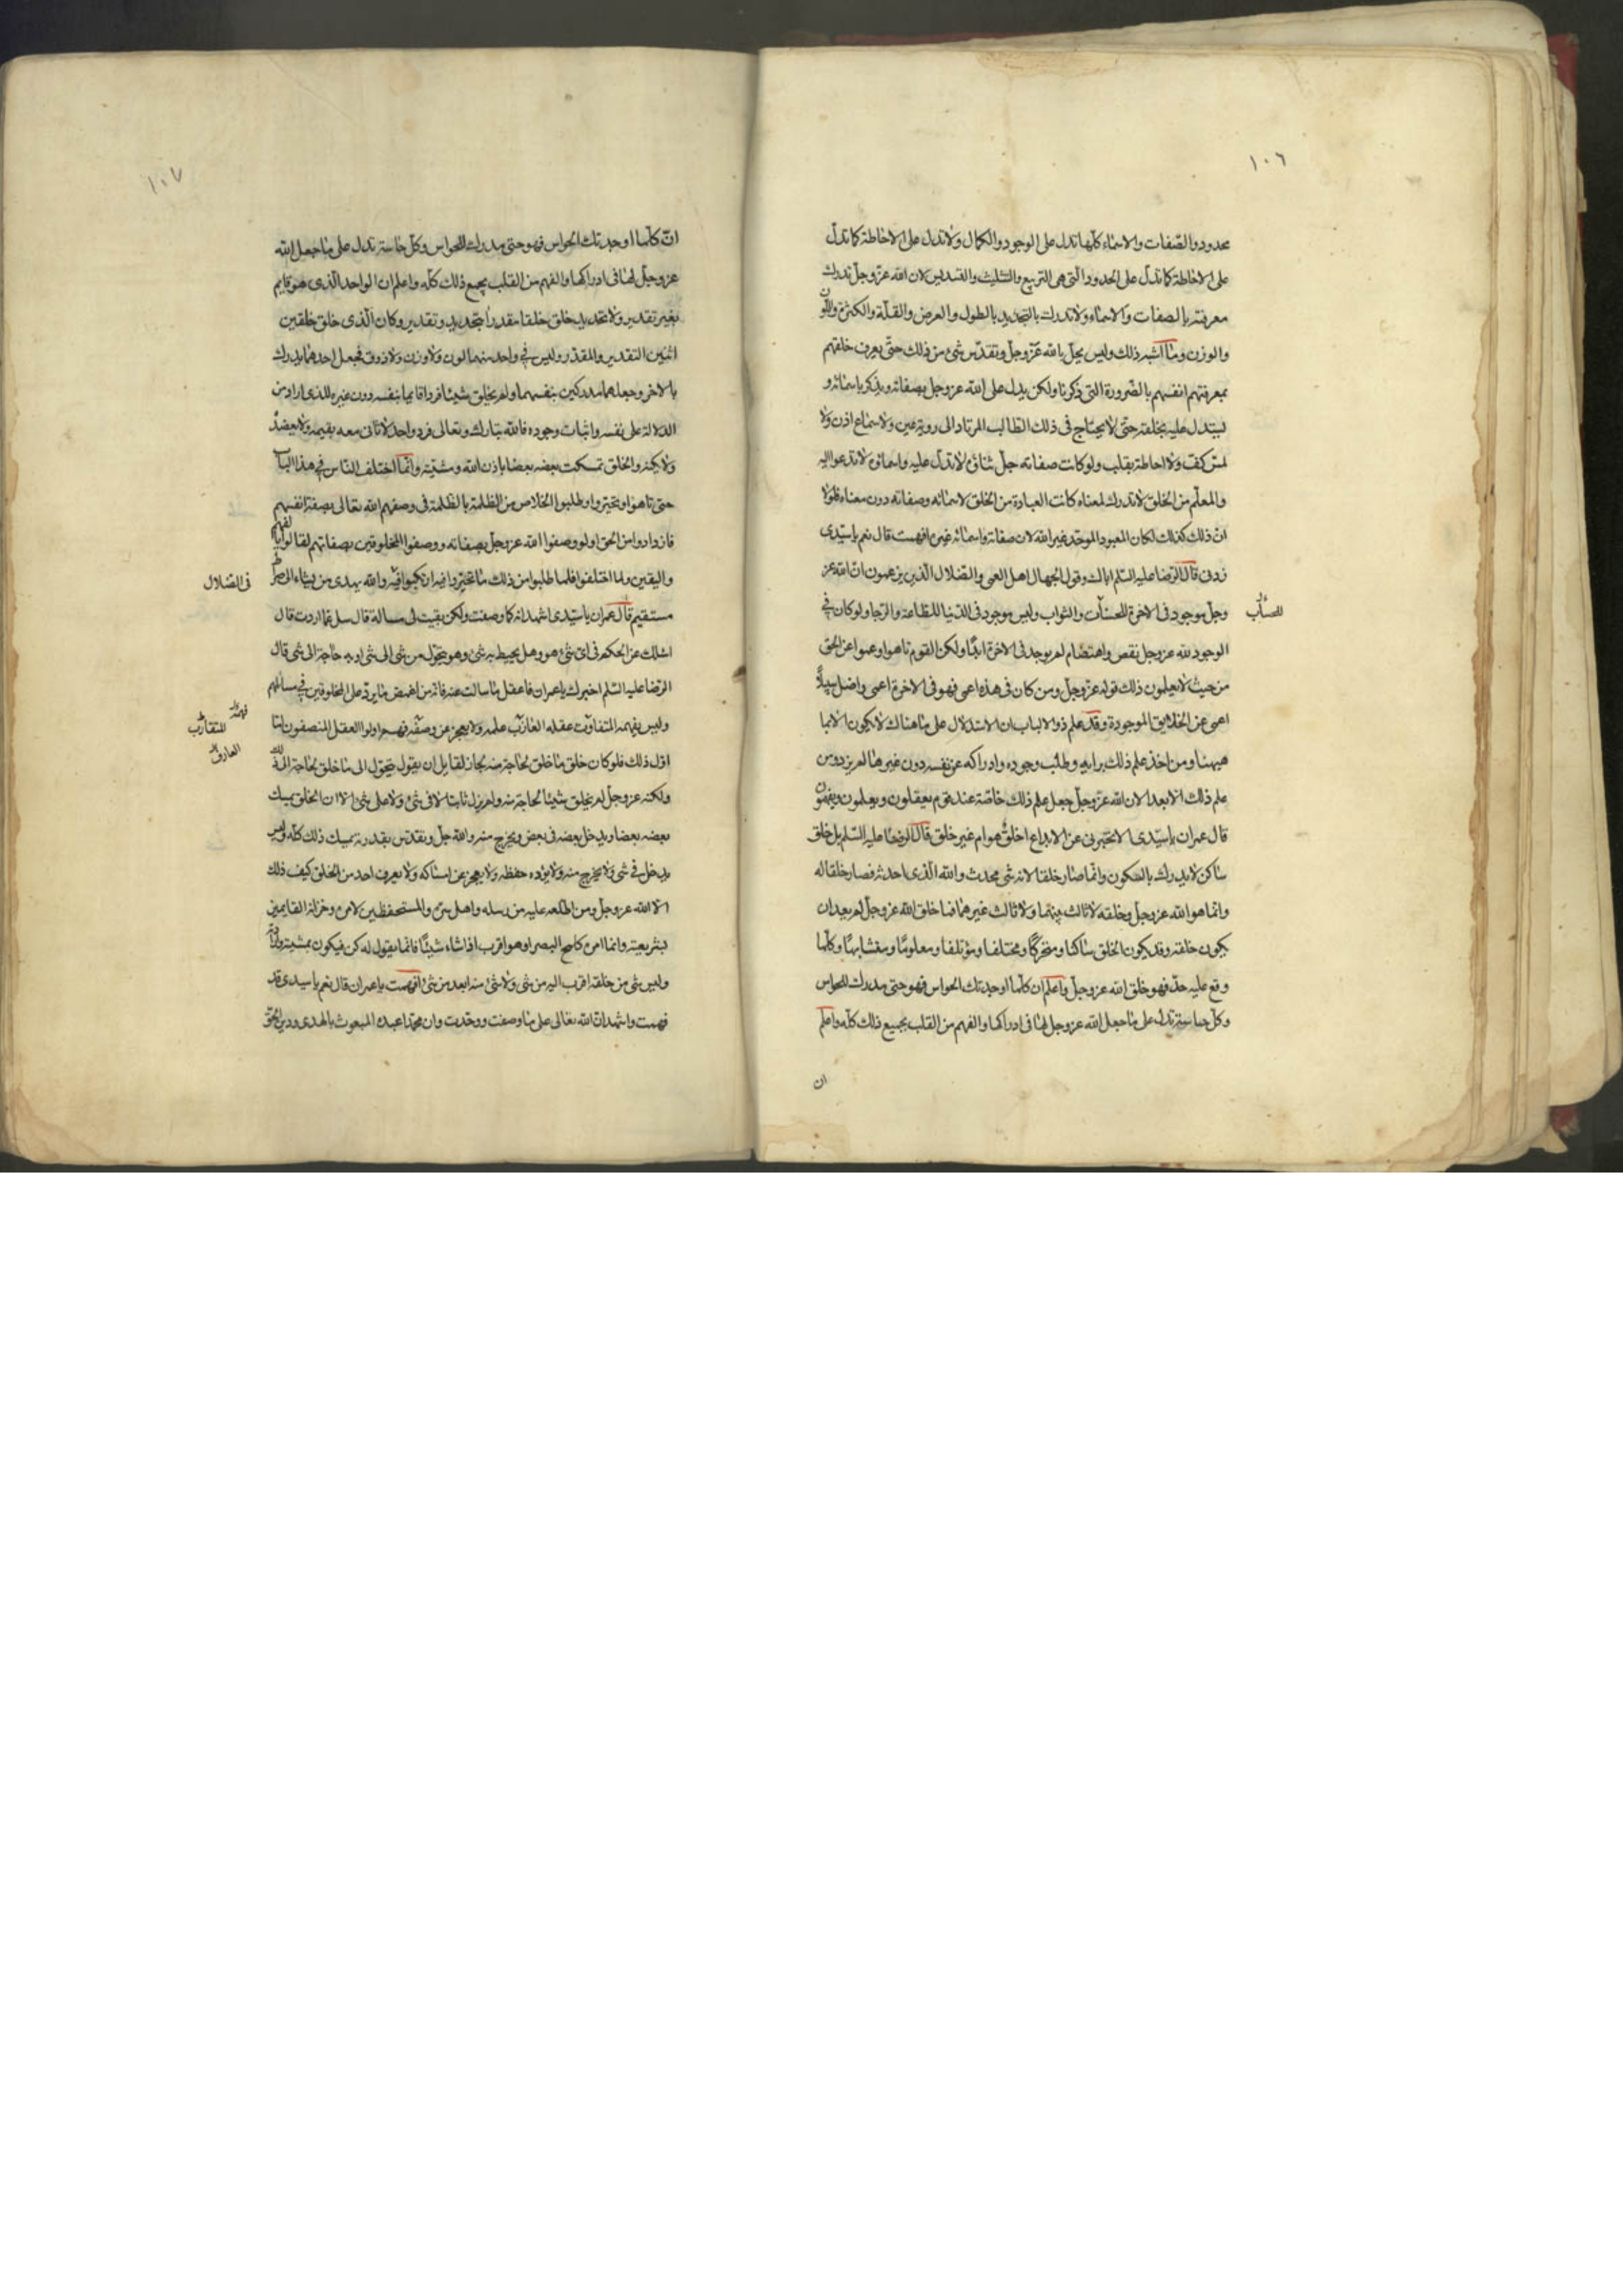 ١٠٦
محدود والصّفات والاسماء كلّها تدل على الوجود والكمال ولا تدل على الاحاطة كما تدلّ
على الاحاطة كما تدلّ على الحدود الّتي هي التربيع والتثليث والتسديس لان الله عزّ وجلّ تدرك
معرفته بالصفات والاسماء ولا تدرك بالتحديد بالطول والعرض والقلّة والكثرة واللّون
والوزن وما اشبه ذلك وليس يحلّ بالله عزّ وجلّ وتقدّس شئ من ذلك حتّى يعرف خلقهم
بمعرفتهم انفسهم بالضّرورة التي ذكرنا ولكن يدل على الله عز وجل بصفاته ويذكر باسمائه و
يستدل عليه بخلقه حتّى لا يحتاج في ذلك الطالب المرتاد الى روية عين ولا سماع اذن ولا
لمس كفّ ولا احاطة بقلب ولو كانت صفاته جلّ ثناؤه لا تدلّ عليه واسمائه لا تدعوا اليه
والمعلّم من الخلق لا تدرك لمعناه كانت العبادة من الخلق لاسمائه وصفاته دون معناه فلولا
انّ ذلك كذلك لكان المعبود الموحّد غير الله لان صفاته واسمائه غيره افهمت قال نعم يا سيّدي
زدني قال الرّضا عليه السّلم اياك وقول الجهال اهل العمى والضّلال الّذين يزعمون انّ الله عز
وجلّ موجود في الاخرة للحسنات والثواب وليس موجود في الدّنيا للطاعة والرّجا ولو كان في
للحساب
الوجود لله عز وجل نقص واهتضام لم يوجد في الاخرة ابدًا ولكن القوم تاهوا وعموا عن الحق
من حيث لا يعلمون ذلك قوله عزّ وجلّ ومن كان في هذه اعمى فهو في الاخرة اعمى واضل سبيلاً
اعمى عن الحقايق الموجودة وقد علم ذوا الالباب ان الاستدلال على ما هناك لا يكون الا بما
هيهنا ومن اخذ علم ذلك برايه وطلب وجوده وادراكه عن نفسه دون غيرها لم يزدد من
علم ذلك الا بعدا لان الله عزّ وجلّ جعل علم ذلك خاصّة عند قوم يعقلون ويعلمون ويفهمون
قال عمران يا سيّدي الا تخبرني عن الابداع اخلق هو ام غير خلق قال الرضا عليه السّلم بل خلق
ساكن لا يدرك بالسكون وانّما صار خلقا لانه شي محدث والله الّذي احدثه فصار خلقا له
وانما هو الله عز وجل وخلقه لا ثالث بينهما ولا ثالث غيرهما فما خلق الله عز وجلّ لم يعد ان
يكون خلقه وقد يكون الخلق ساكنا ومتحرّكا ومختلفا ومؤتلفا ومعلومًا ومتشابهًا وكلّما
وقع عليه حدّ فهو خلق الله عز وجلّ واعلم ان كلّما اوجدتك الحواس فهو حتى مدرك للحواس
وكلّ حاسة تدل على ما جعل الله عز وجل لها في ادراكها والفهم من القلب بجميع ذلك كلّه واعلم
ان
١٠٧
انّ كلّما اوجدتك الحواس فهو حتى مدرك للحواس وكلّ حاسة تدل على ما جعل الله
عز وجلّ لها في ادراكها والفهم من القلب بجميع ذلك كلّه واعلم ان الواحد الّذي هو قايم
بغير تقدير ولا تحديد خلق خلقا مقدرا بتحديد وتقدير وكان الّذي خلق خلقين
اثنين التقدير والمقدّر وليس في واحد منهما لون ولا وزن ولا ذوق فجعل احدهما يدرك
بالاخر وجعلهما مدركين بنفسهما ولم يخلق شيئا فردا قايما بنفسه دون غيره للذي اراد من
الدلالة على نفسه واثبات وجوده فالله تبارك وتعالى فرد واحد لا ثاني معه يقيمه ولا يعضدْ
ولا يكنه والخلق تمسكت بعضه بعضا باذن الله ومشيّته وانّما اختلف النّاس في هذا الباب
حتى تاهوا وتحيّروا وطلبوا الخلاص من الظلمة بالظلمة في وصفهم الله تعالى بصفة انفسهم
فازدادوا من الحق ولو وصفوا الله عز وجلّ بصفاته ووصفوا المخلوقين بصفاتهم لقالوا بالفهم
واليقين ولما اختلفوا فلما طلبوا من ذلك ما تحيّروا فيه ارتكبوا فيه والله يهدي من يشاء الى صراط
في الضلال
مستقيم قال عمران يا سيّدي اشهد انه كما وصفت ولكن بقيت لي مسالة قال سل عمّا اردت قال
اسئلك عن الحكيم في اي شئ هو وهل يحيط به شئ وهو يتحوّل من شئ الى شئ او به حاجة الى شي قال
الرّضا عليه السّلم اخبرك يا عمران فاعقل ما سالت عنه فانّه من اغمض ما يرد على المخلوقين في مسائلهم
وليس يفهمه المتفاوت عقله العازب علمه ولا يعجز عن وصفه فهمه اولوا العقل المنصفون امّا
فهمه
المتقارب
العازف
اوّل ذلك فلو كان خلق ما خلق لحاجة منه لجاز لقايل ان يقول يتحوّل الى ما خلق لحاجة الى ذلك
ولكنه عز وجلّ لم يخلق شيئا لحاجة منه ولم يزل ثابتا لا في شئ ولا على شئ الا ان الخلق يمسك
بعضه بعضا ويدخل بعضه في بعض ويخرج منه والله جلّ وتقدّس بقدرته يمسك ذلك كلّه وليس
يدخل في شي ولا يخرج منه ولا يؤده حفظه ولا يعجز عن امساكه ولا يعرف احد من الخلق كيف ذلك
الا الله عز وجل ومن اطلعه عليه من رسله واهل سرّه والمستحفظين لامره وخزانه القايمين
بشريعته وانما امره كلمح البصر او هو اقرب اذا شاء شيئًا فانما يقول له كن فيكون بمشيته وارادته
وليس شي من خلقه اقرب اليه من شي ولا شئ منه ابعد من شئ افهمت يا عمران قال نعم يا سيدي قد
فهمت واشهد ان الله تعالى على ما وصفت ووحّدت وان محمّدا عبده المبعوث بالهدى ودين الحقّ